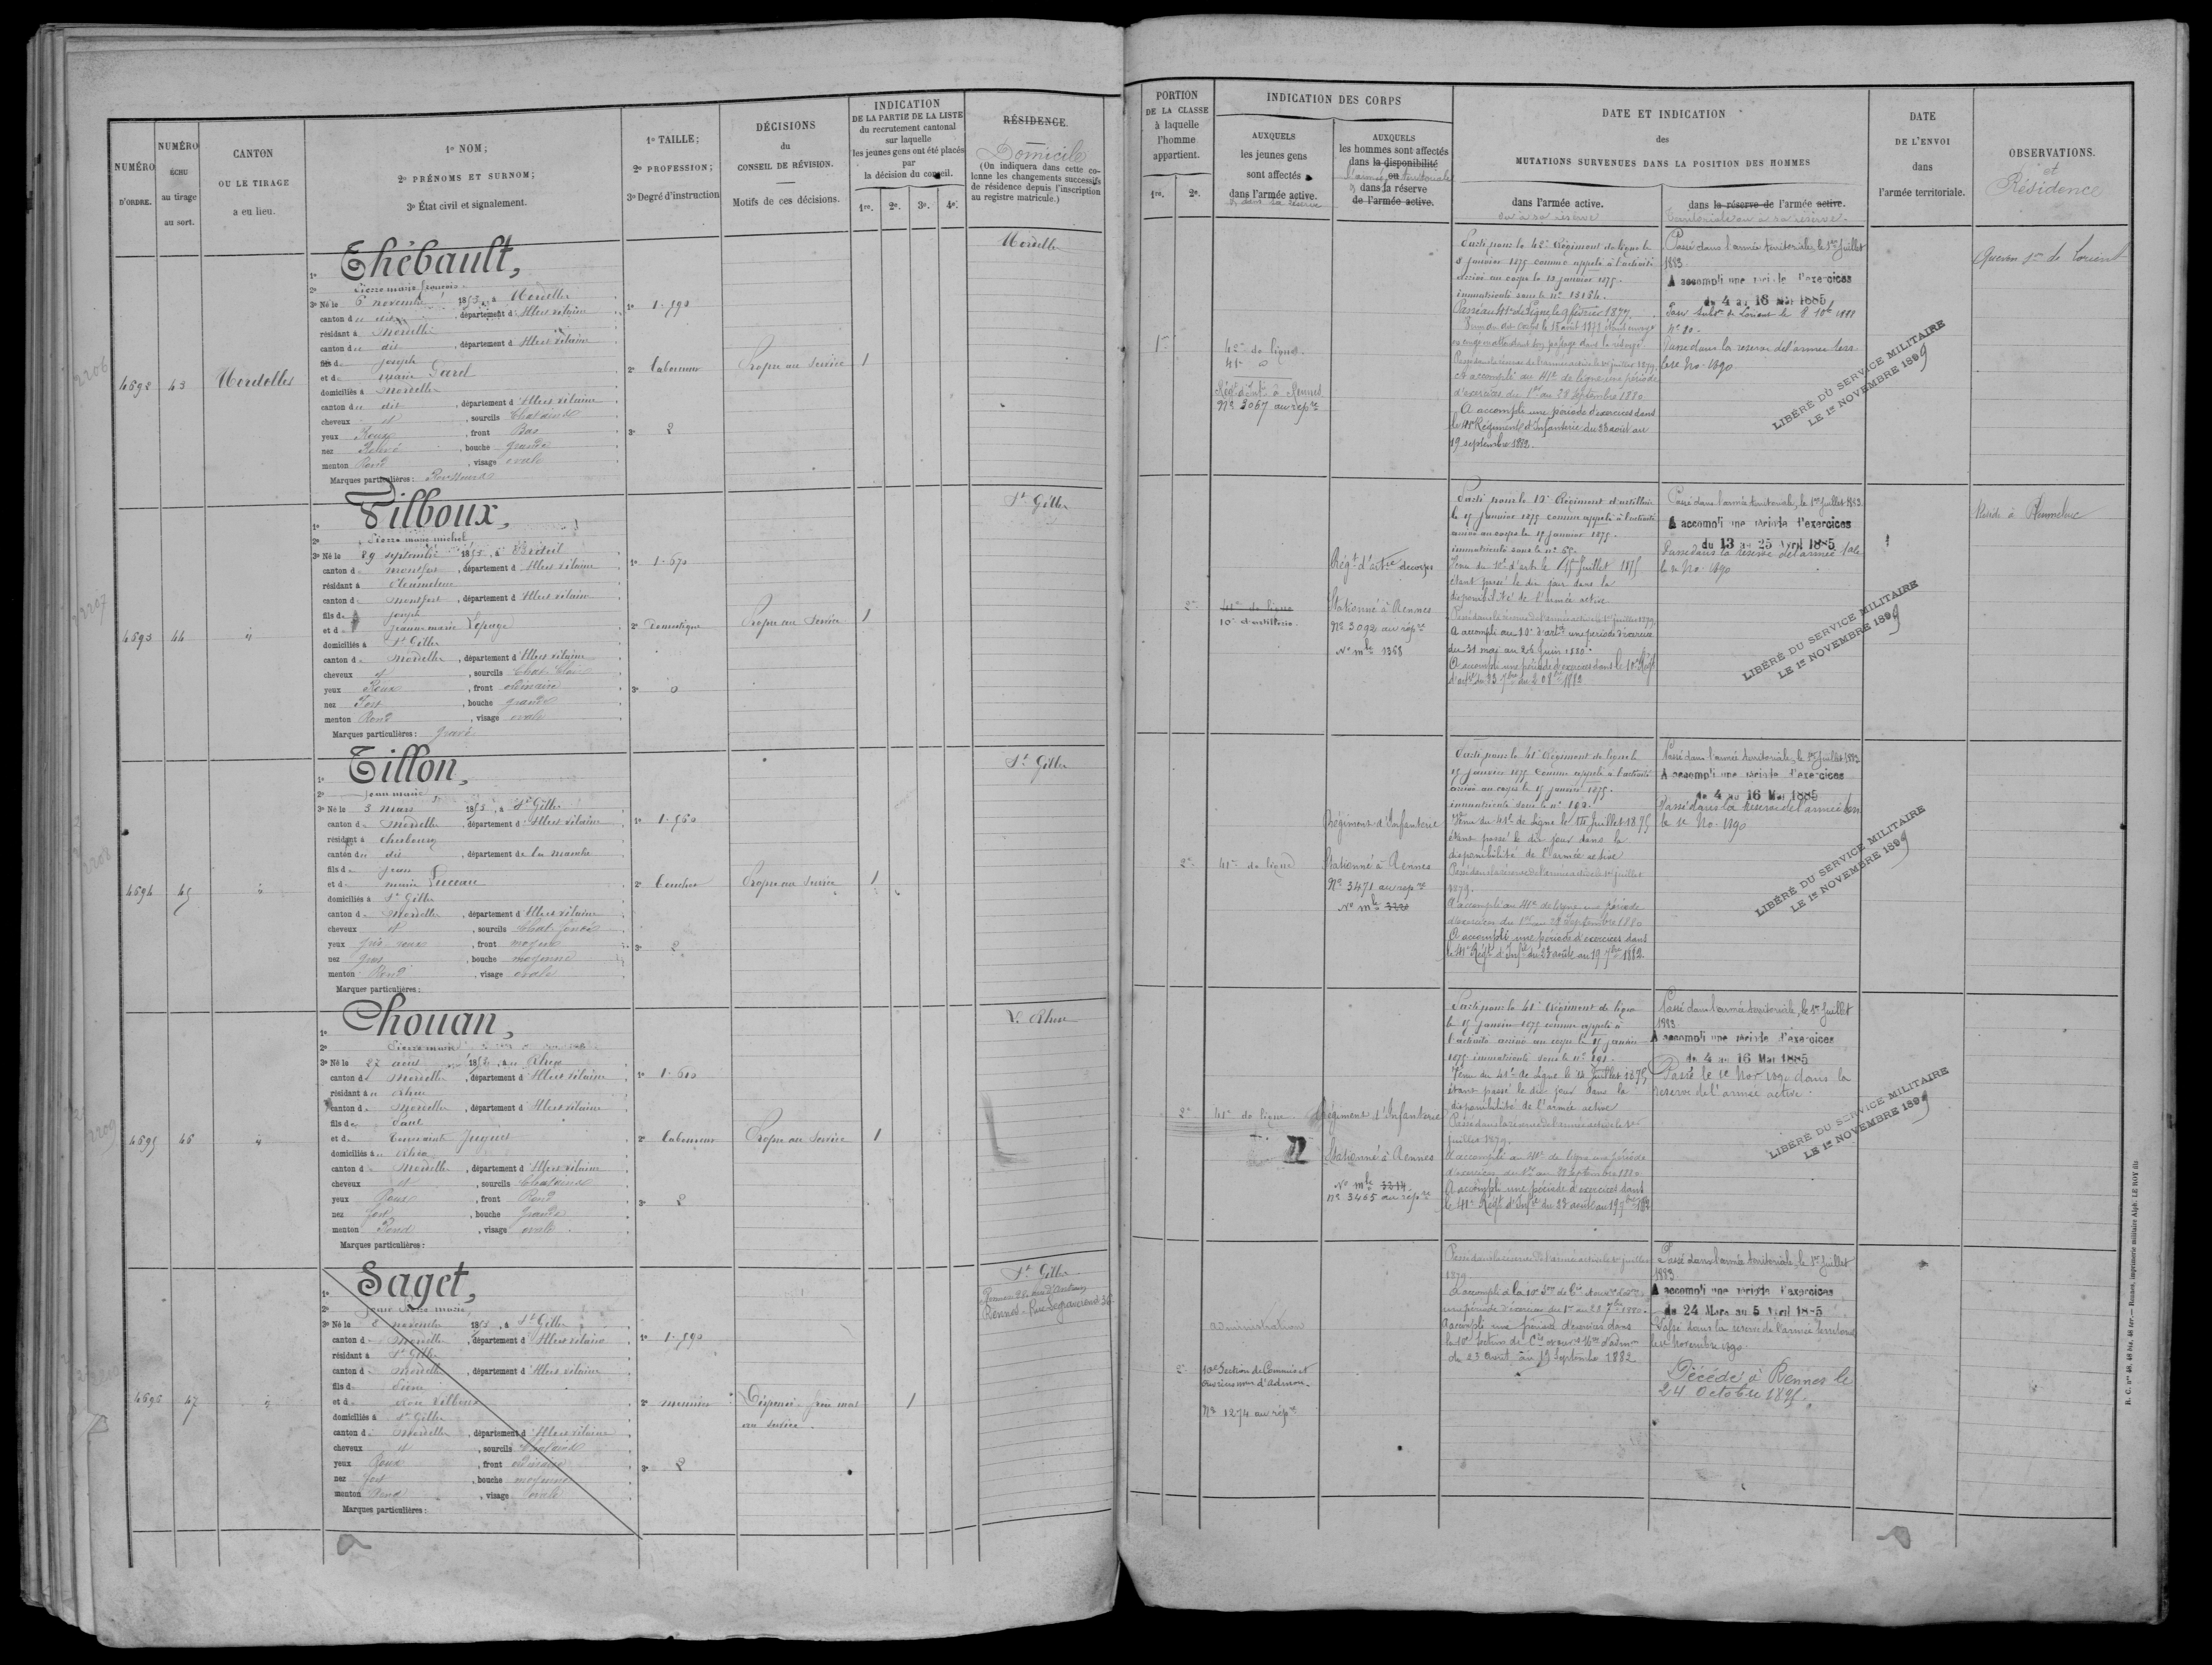 NUMÉRO
D'ORDRE.
NUMÉRO
ÉCHU
au tirage
au sort.
CANTON
OU LE TIRAGE
a eu lieu.
1º NOM;
2º PRÉNOMS ET SURNOM;
3º État civil et signalement.
1º TAILLE;
2º PROFESSION;
3º Degré d'instruction
DÉCISIONS
du
CONSEIL DE RÉVISION.
Motifs de ces décisions.
INDICATION
DE LA PARTIE DE LA LISTE
du recrutement cantonal
sur laquelle
les jeunes gens ont été placés
par
la décision du conseil.
1re. 2e. 3e. 4e.
RÉSIDENCE
Domicile
(On indiquera dans cette colonne les changements successifs
de résidence depuis l'inscription
au registre matricule.)
4592 43 Mordelles
1º Thébault,
2º Pierre marie françois
3º Né le 6 novembre 1855, à Mordelles
canton du dit, département d'Ille et vilaine
résidant à Mordelles
canton du dit, département d'Ille et vilaine
fils de Joseph
et de marie Garel
domiciliés à Mordelles
canton du dit, département d'Ille et vilaine
cheveux et, sourcils Chatains
yeux Roux, front Bas
nez Relevé, bouche grande
menton Rond, visage ovale
Marques particulières :
1º 1.590
2º Laboureur
3º 2
Propre au service 1
Mordelles
4593 44 "
1º Tilboux,
2º Pierre marie michel
3º Né le 29 septembre 1855, à
canton de montfort, département d'Ille et vilaine
résidant à
canton de montfort, département d'Ille et vilaine
fils de Joseph
et de Jeanne marie Lepage
domiciliés à St Gilles
canton de Mordelles, département d'Ille et vilaine
cheveux et, sourcils Chat. Clair
yeux Roux, front ordinaire
nez Fort, bouche grande
menton Rond, visage ovale
Marques particulières : gravé
1º 1.670
2º Domestique
3º 0
Propre au Service 1
St Gilles
4594 45 "
1º Tillon,
2º Jean marie
3º Né le 3 mars 1855, à St Gilles
canton de Mordelles, département d'Ille et vilaine
résidant à Cherbourg
canton du dit, département de la manche
fils de Jean
et de marie Luceau
domiciliés à St Gilles
canton de Mordelles, département d'Ille et vilaine
cheveux et, sourcils Chat. foncés
yeux gris roux, front moyen
nez gros, bouche moyenne
menton Rond, visage ovale
Marques particulières :
1º 1.560
2º
3º 2
Propre au Service 1
St Gilles
4595 46 "
1º Chouan,
2º Pierre marie
3º Né le 27 août 1855, au Rheu
canton de Mordelles, département d'Ille et vilaine
résidant au Rheu
canton de Mordelles, département d'Ille et vilaine
fils de Paul
et de Juguet
domiciliés au Rheu
canton de Mordelles, département d'Ille et vilaine
cheveux et, sourcils Chatains
yeux Roux, front Rond
nez fort, bouche grande
menton Rond, visage ovale
Marques particulières :
1º 1.610
2º Laboureur
3º 2
Propre au Service 1
Le Rheu
4596 47 "
1º Saget,
2º Jean Pierre marie
3º Né le 2 novembre 1855, à St Gilles
canton de Mordelles, département d'Ille et vilaine
résidant à St Gilles
canton de Mordelles, département d'Ille et vilaine
fils de Pierre
et de Tilboux
domiciliés à St Gilles
canton de Mordelles, département d'Ille et vilaine
cheveux et, sourcils Chatains
yeux Roux, front ordinaire
nez fort, bouche moyenne
menton Rond, visage ovale
Marques particulières :
1º 1.590
2º menuisier
3º 2
Dispensé. frère mort
au service 1
St Gilles
PORTION
DE LA CLASSE
à laquelle
l'homme
appartient.
1re. 2e.
INDICATION DES CORPS
AUXQUELS
les jeunes gens
sont affectés
dans l'armée active.
& dans sa réserve
AUXQUELS
les hommes sont affectés
dans la disponibilité
ou
l'armée territoriale
& dans la réserve
de l'armée active.
DATE ET INDICATION
des
MUTATIONS SURVENUES DANS LA POSITION DES HOMMES
dans l'armée active.
ou à sa réserve
dans la réserve de l'armée active.
territoriale ou à sa réserve.
DATE
DE L'ENVOI
dans
l'armée territoriale.
OBSERVATIONS.
et
Résidence
1re
42e de ligne
41e d°
Régt d'Infie à Rennes
No 3067 au repre
Parti pour le 42e Régiment de ligne le
8 janvier 1875 comme appelé à l'activité
arrivé au corps le 13 janvier 1875.
immatriculé sous le n°
Passé au 41e de Ligne le 9 février 1877.
Passé dans la réserve de l'armée active le 1er juillet 1879.
A accompli au 41e de ligne une période
d'exercices du 1er au 28 Septembre 1880
A accompli une période d'exercices dans
le 41e Régiment d'Infanterie du 23 août au
19 septembre 1882.
Passé dans l'armée territoriale, le 1er Juillet
1883
A accompli une période d'exercices
du 4 au 16 Mai 1885
Passé dans la réserve de l'armée terr
le 1er No. 1890
LIBÉRÉ DU SERVICE MILITAIRE
LE 1er NOVEMBRE 1899
Quéven sn de Lorient
2e
41e de ligne
10e d'artillerie.
Régt d'artie de corps
Stationné à Rennes
No 3092 au repre
No mle 1368
Parti pour le 10e Régiment d'artillerie
le 17 Janvier 1875 comme appelé à l'activité
arrivé au corps le 17 janvier 1875.
immatriculé sous le n°
Venu du 10e d'artie le 15 Juillet 1875
étant passé le dit jour dans la
disponibilité de l'armée active
Passé dans la réserve de l'armée active le 1er juillet 1879
A accompli au 10e d'artie une période d'exercices
du 31 mai au 26 Juin 1880.
A accompli une période d'exercices dans le 10e Régt
Passé dans l'armée territoriale, le 1er Juillet 1883
A accompli une période d'exercices
du 13 au 25 Avril 1885
Passé dans la réserve de l'armée tale
le 1er No. 1890
LIBÉRÉ DU SERVICE MILITAIRE
LE 1er NOVEMBRE 1899
Réside à Pleumeleuc
2e
41e de ligne
Régiment d'Infanterie
Stationné à Rennes
No 3471 au repre
No mle 3220
Parti pour le 41e Régiment de ligne le
17 Janvier 1875 comme appelé à l'activité
arrivé au corps le 17 janvier 1875.
immatriculé sous le n°
Venu du 41e de Ligne le 15 Juillet 1875
étant passé le dit jour dans la
disponibilité de l'armée active
Passé dans la réserve de l'armée active le 1er juillet
1879.
A accompli au 41e de ligne une période
d'exercices du 1er au 28 Septembre 1880
A accompli une période d'exercices dans
le 41e Régt d'Infie du 23 août au 19 7bre 1882.
Passé dans l'armée territoriale, le 1er Juillet 1883
A accompli une période d'exercices
du 4 au 16 Mai 1885
Passé dans la réserve de l'armée terr
le 1er No. 1890
LIBÉRÉ DU SERVICE MILITAIRE
LE 1er NOVEMBRE 1899
2e
41e de ligne
Régiment d'Infanterie
Stationné à Rennes
No mle 3214
No 3465 au repre
Parti pour le 41e Régiment de ligne
le 17 janvier 1875 comme appelé à
l'activité arrivé au corps le 17 janvier
1875 immatriculé sous le n° 191
Venu du 41e de Ligne le 15 Juillet 1875
étant passé le dit jour dans la
disponibilité de l'armée active
Passé dans la réserve de l'armée active le 1er
juillet 1879.
A accompli au 41e de ligne une période
d'exercices du 1er au 28 Septembre 1880
A accompli une période d'exercices dans
le 41e Régt d'Infie du 23 août au 19 7bre 1882
Passé dans l'armée territoriale, le 1er Juillet
1883
A accompli une période d'exercices
du 4 au 16 Mai 1885
Passé le 1er Nor 1890 dans la
réserve de l'armée active.
LIBÉRÉ DU SERVICE MILITAIRE
LE 1er NOVEMBRE 1899
2e
administration
10e Section de Commis et
ouvriers mres d'Admon.
No 1274 au repre
Passé dans la réserve de l'armée active le 1er juillet
1879
A accompli une période d'exercices dans
du 23 Août au 19 Septembre 1882
Passé dans l'armée territoriale, le 1er Juillet
1883
A accompli une période d'exercices
du 24 Mars au 5 Avril 1885
Passé dans la réserve de l'armée territoriale
le 1er Novembre 1890
Décédé à Rennes le
24 Octobre 1895.
R. C. nos 46, 46 bis, 46 ter. — Rennes, imprimerie militaire Alph. LE ROY fils